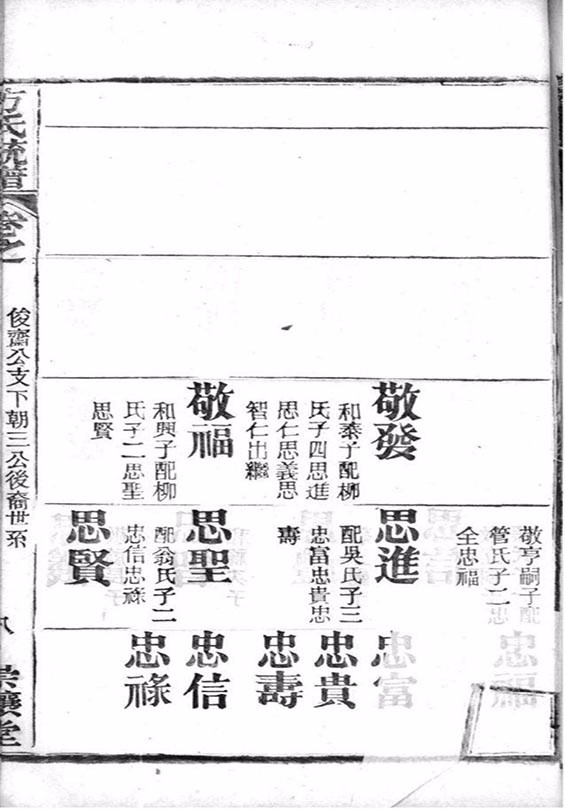 敬亨嗣子配
管氏子二忠
全忠福
忠福
敬發
和泰子配柳
氏子四思進
思仁思義思
智仁出繼
思進
配吳氏子三
忠富忠貴忠
壽
忠富
忠貴
忠壽
敬福
和興子配柳
氏子二思聖
思賢
思聖
配翁氏子二
忠信忠祿
忠信
忠祿
思賢
方氏統譜
卷之一
俊齋公支下朝三公後裔世系
八
堂